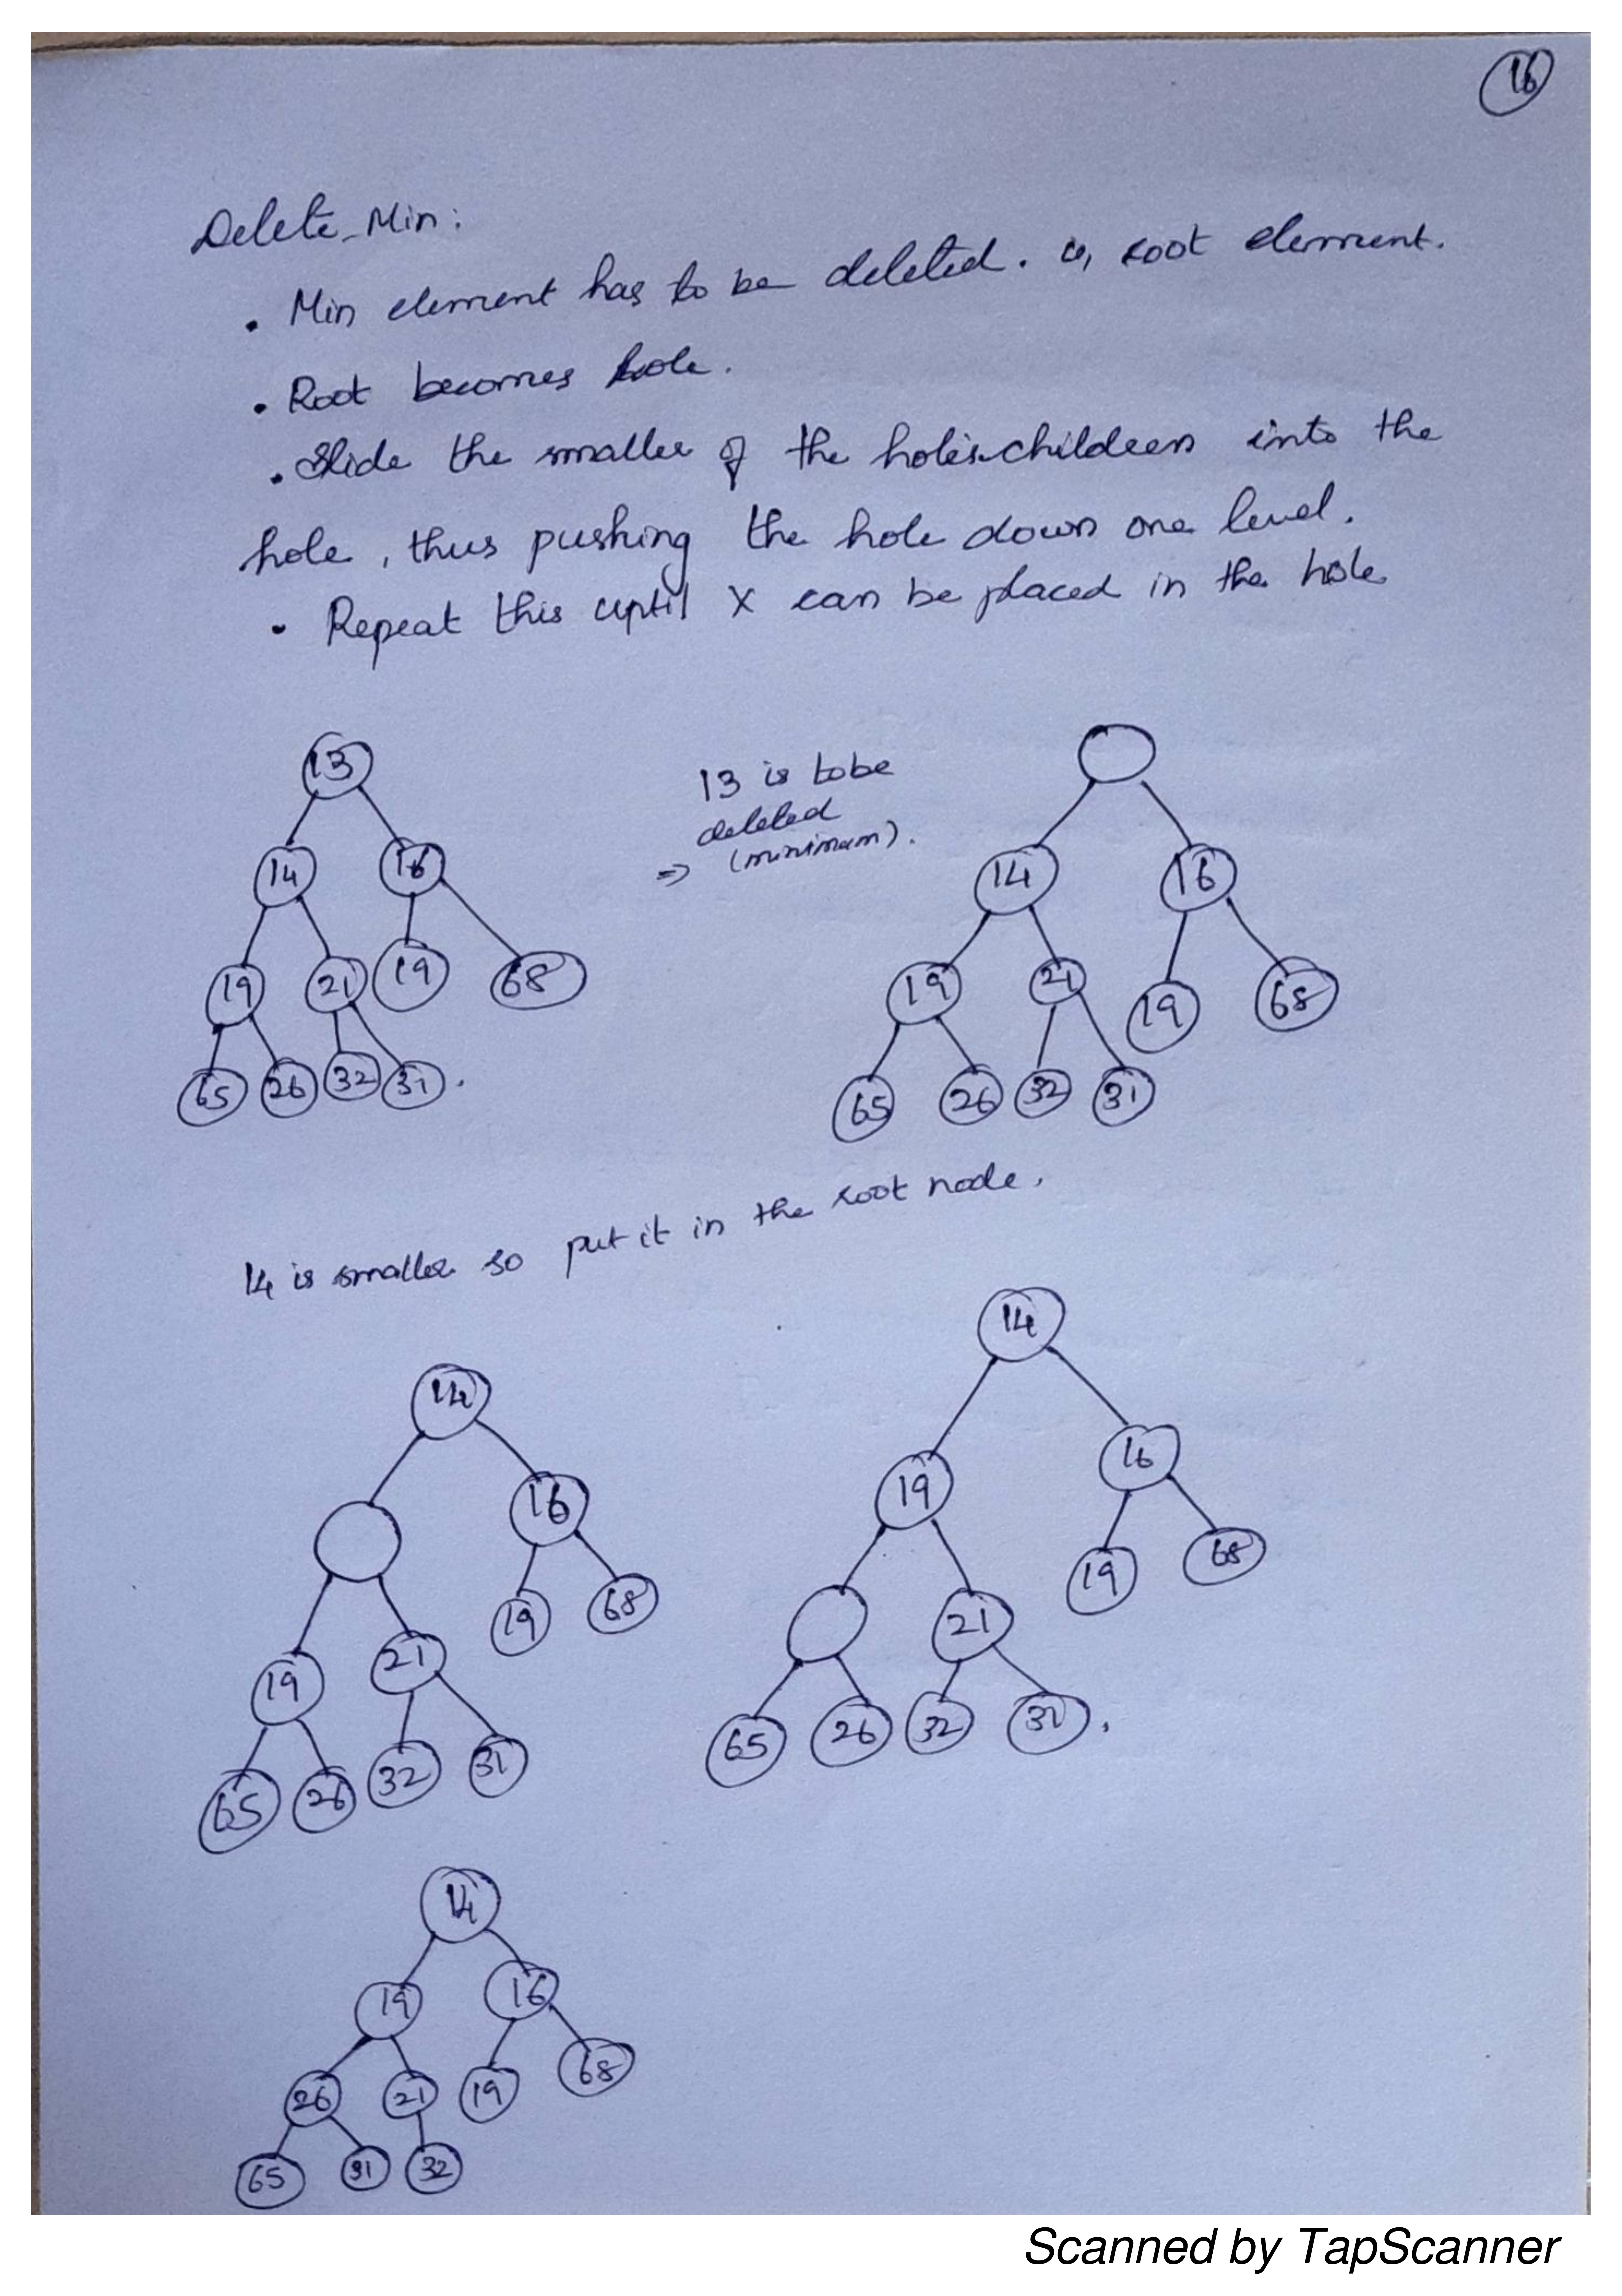 16
Delete_Min:
. Min element has to be deleted. ie, root element.
. Root becomes hole.
. Slide the smaller of the hole's children into the
hole, thus pushing the hole down one level.
. Repeat this uptil X can be placed in the hole
13
14 16
19 21 19 68
65 26 32 31.
13 is tobe
deleted
=> (minimum).
14 16
19 21 19 68
65 26 32 31
14 is smaller so put it in the root node.
14
16
19 21 19 68
65 26 32 31
14
19 16
21 19 68
65 26 32 31.
14
19 16
26 21 19 68
65 31 32
Scanned by TapScanner